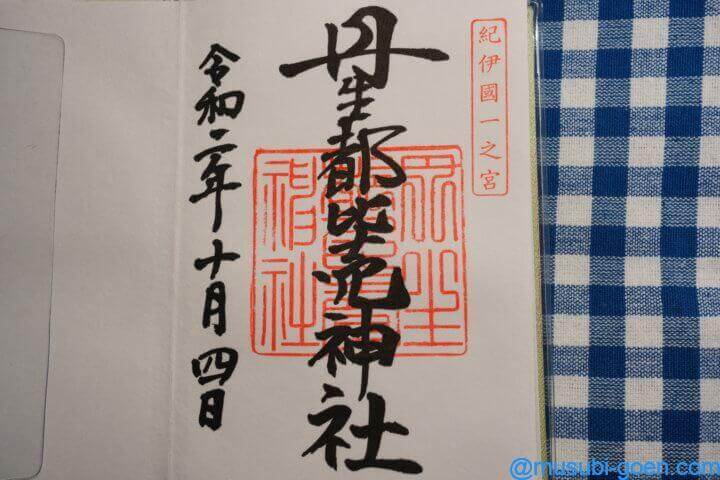 紀伊國一之宮
丹生都比売神社
令和二年十月四日
@musubi-goen.com